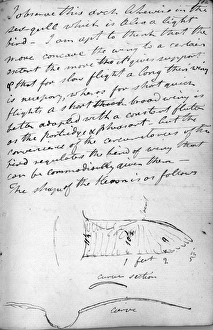 To browse this duck. Whereas in the
sea-gull which is also a light
bird. I am apt to think that the
more concave the wing to a certain
extent the more it gives support
& that for slow flight a long thin wing
is necessary, whereas for short quick
flights a short broad wing is
better adapted with a constant flutter
as the partridge & pheasant. But the
convenience of the
bird regulates the kind of wing that
can be commodiously given them
The shape of the Heron is as follows
1 foot
curve section
curve